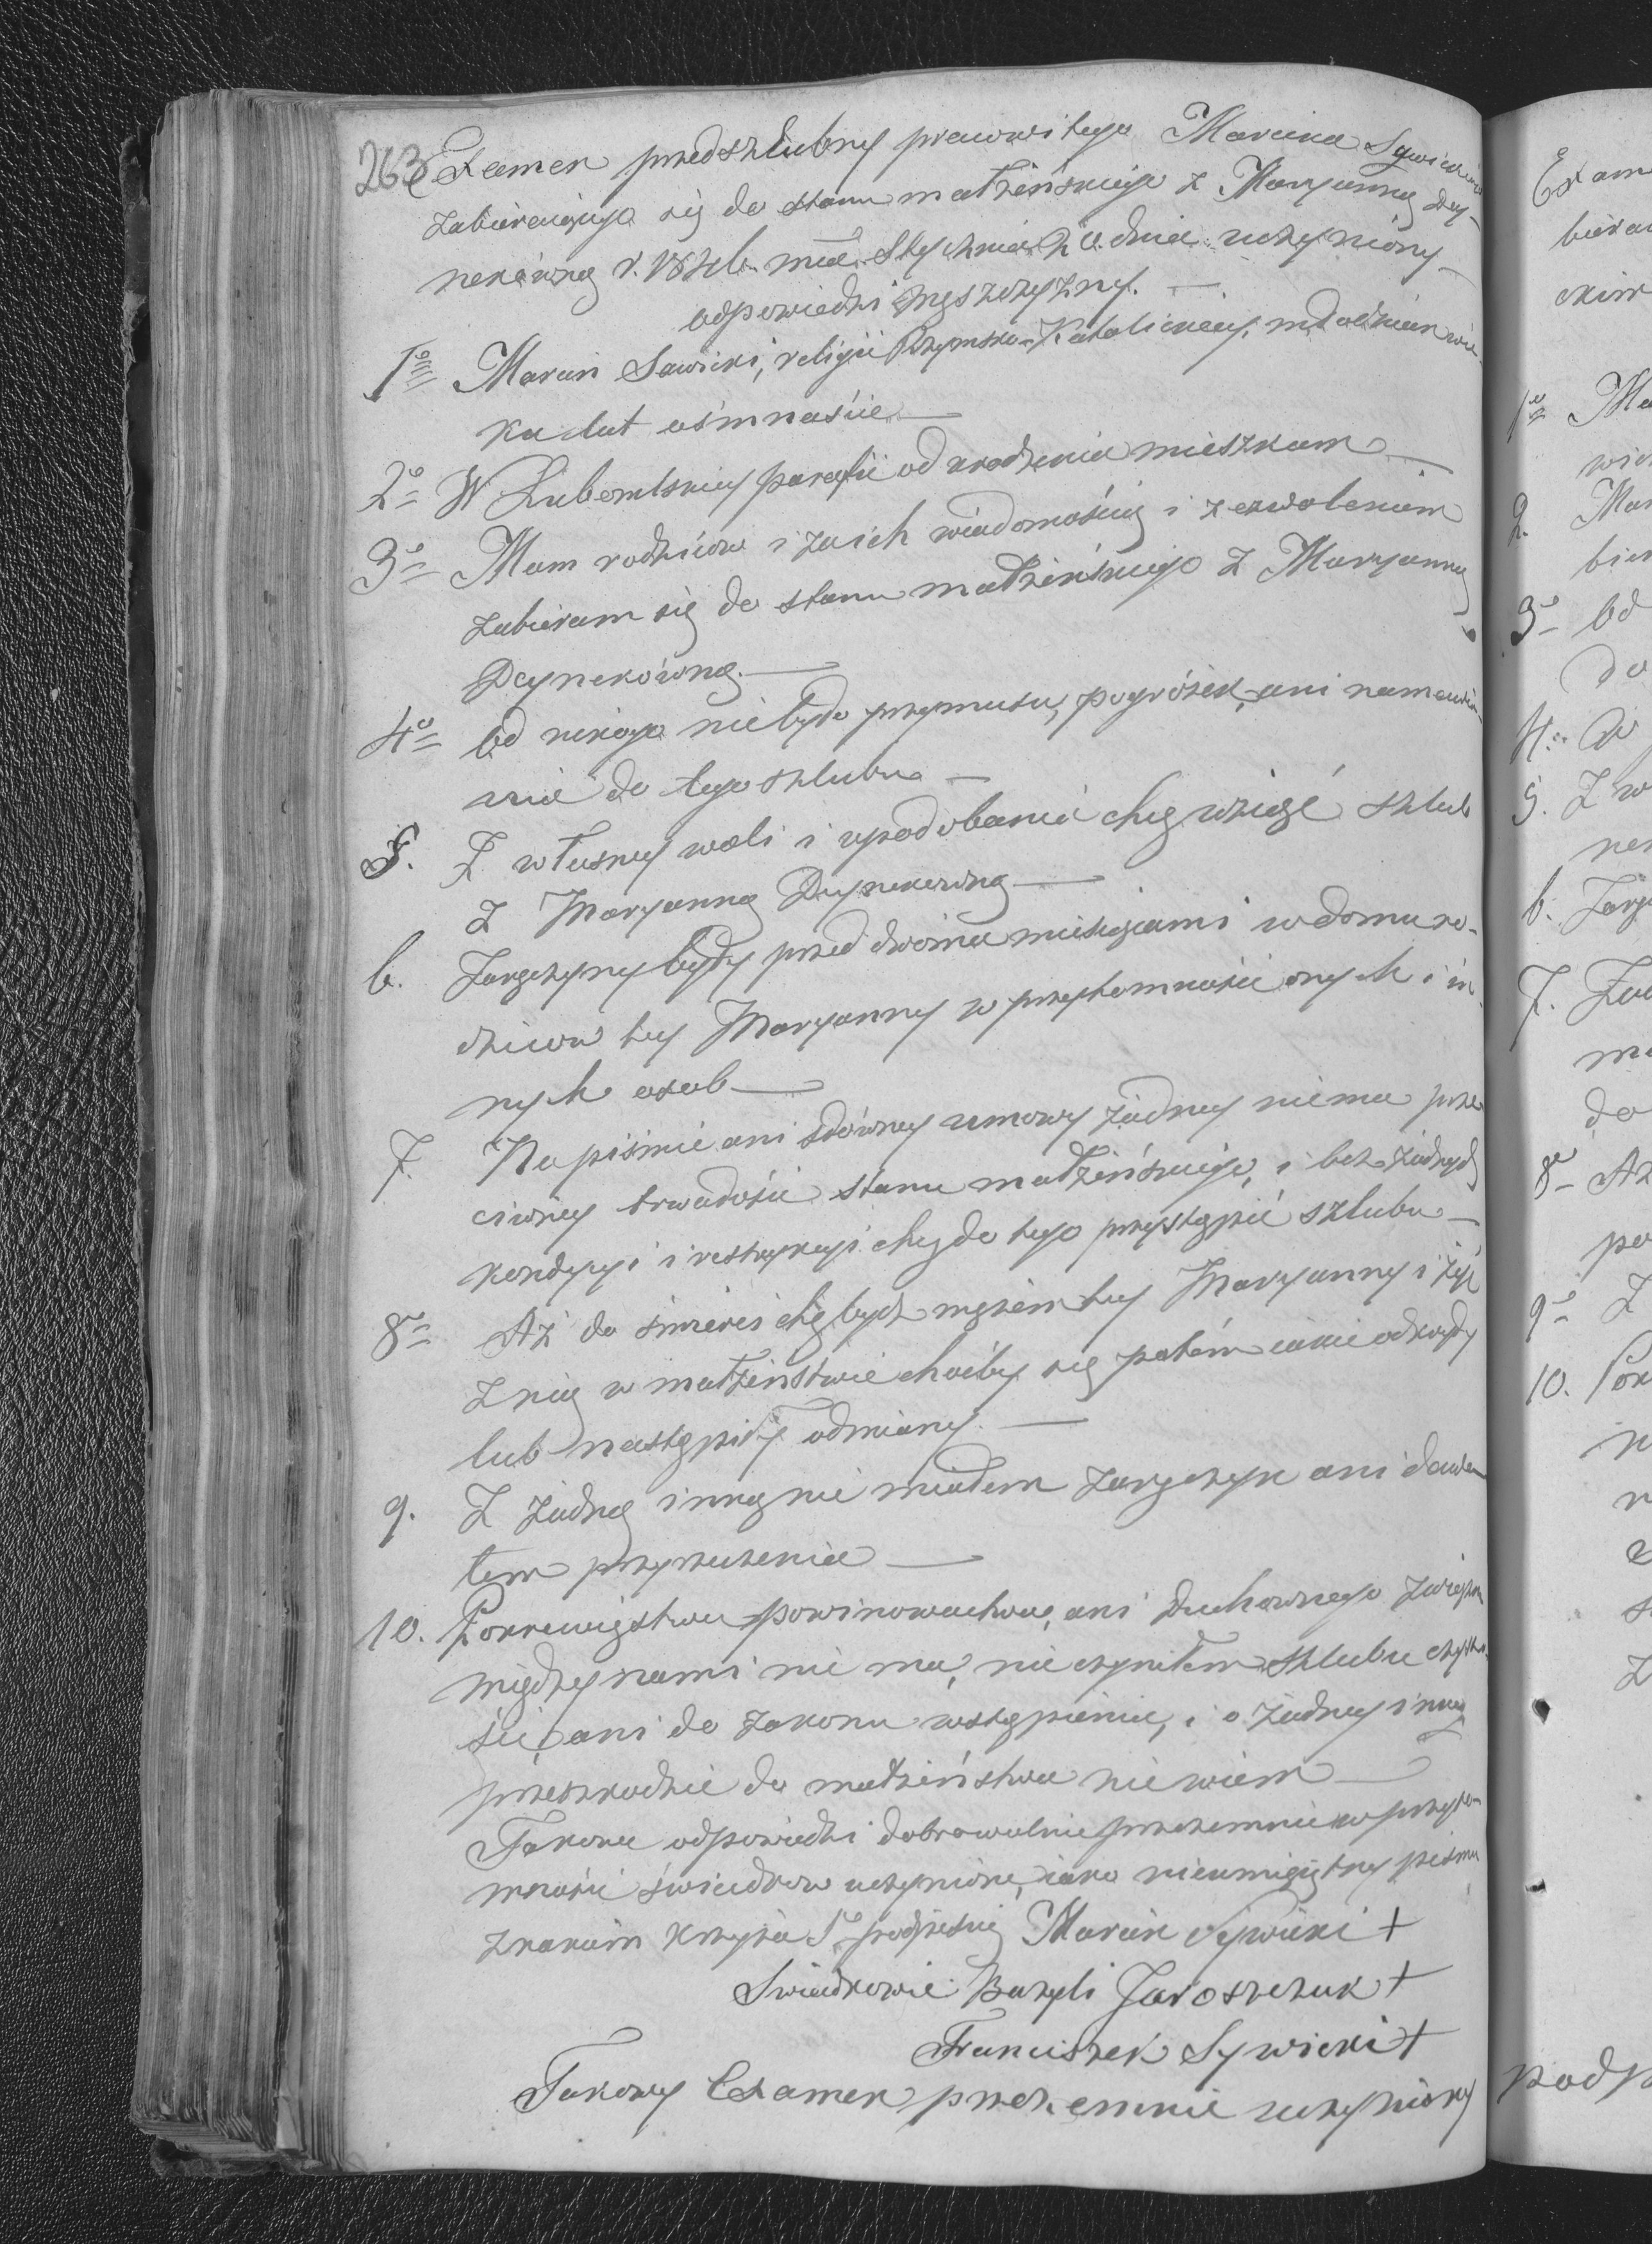 263 Examen przedszlubny pracowitego Marcina Sywickiego
zabierającego się do stanu małżeńskiego z Maryanną Dey-
nekówną r. mca Stycznia 20 dnia uczyniony
odpowiedzi Męszczyzny. —
1o Marcin Sawicki, religii Rzymsko-Katolickiey, młodzian wie-
ku lat ośmnaście —
2o W Lubomlskiey parafii od urodzenia mieszkam —
3o Mam rodziców i za ich wiadomością i zezwoleniem
zabieram się do stanu małżeńskiego z Maryanną
Deynekówną. —
4o Od nikogo niebyło przymusu, pogróżek, ani namawia-
nia do tego szlubu —
5. Z własney woli i upodobania chcę wziąść szlub
z Maryanną Deynekowną —
6. Zaręczyny były przed dwoma miesiącami w domu ro-
dziców tey Maryanny w przytomności onych i in-
nych osob —
7. Na piśmie ani słówney umowy żadney niema prze-
ciwney trwałości stanu małżeńskiego, i bez żadnych
kondycyi i restrykcyi chcę do tego przystąpić szlubu —
8o Aż do śmierci chcę bydź mężem tey Maryanny i żyć
z nią w małżeństwie choćby się potém iakie odkryły
lub nastąpiły odmiany —
9. Z żadną inną nie miałem zaręczyn ani dawa-
łem przyrzeczenia —
10. Pokrewieństwa powinowactwa, ani Duchownego związku
między nami nie ma, nie czyniłem szlubu czysto-
ści, ani do zakonu wstąpienia, i o żadney inney
przeszkodzie do małżeństwa nie wiem —
Takowe odpowiedzi dobrowolnie przezemnie w przyto-
mności świadków uczynione, iako nieumieiętny pisma
znakiem krzyża So podpisuię Marcin Sywicki +
Swiadkowie Bazyli Jaroszczuk +
Franciszek Sywicki +
Takowy Examen przezemnie uczyniony
Exam
1o Ma
2. Mar
3o Od
do
4.
5. Z w
6. Zarę
7.
do
8o Aż
9o Z
10.
podp